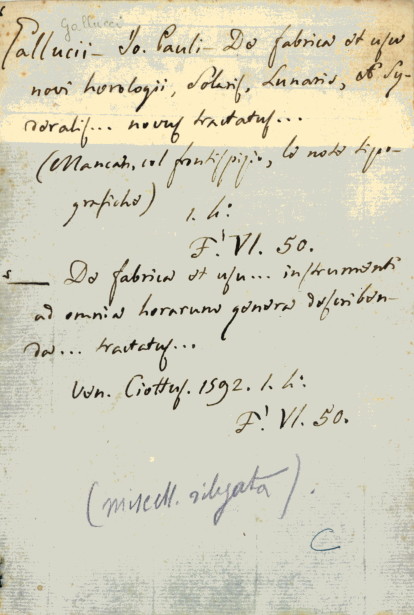 Gallucci
Gallucii - Jo. Pauli - De fabrica et usu
novi horologii, Solaris, Lunaris, et Sy-
deralis... novus tractatus...
(Mancan, col frontispizio, le note tipo-
grafiche)
1. h:
F! VI. 50.
— De fabrica et usu... instrumenti
ad omnia horarum genera describen-
da... tractatus...
Ven. Ciottus. 1592. 1. h:
F! VI. 50.
(miscell. slegata).
C